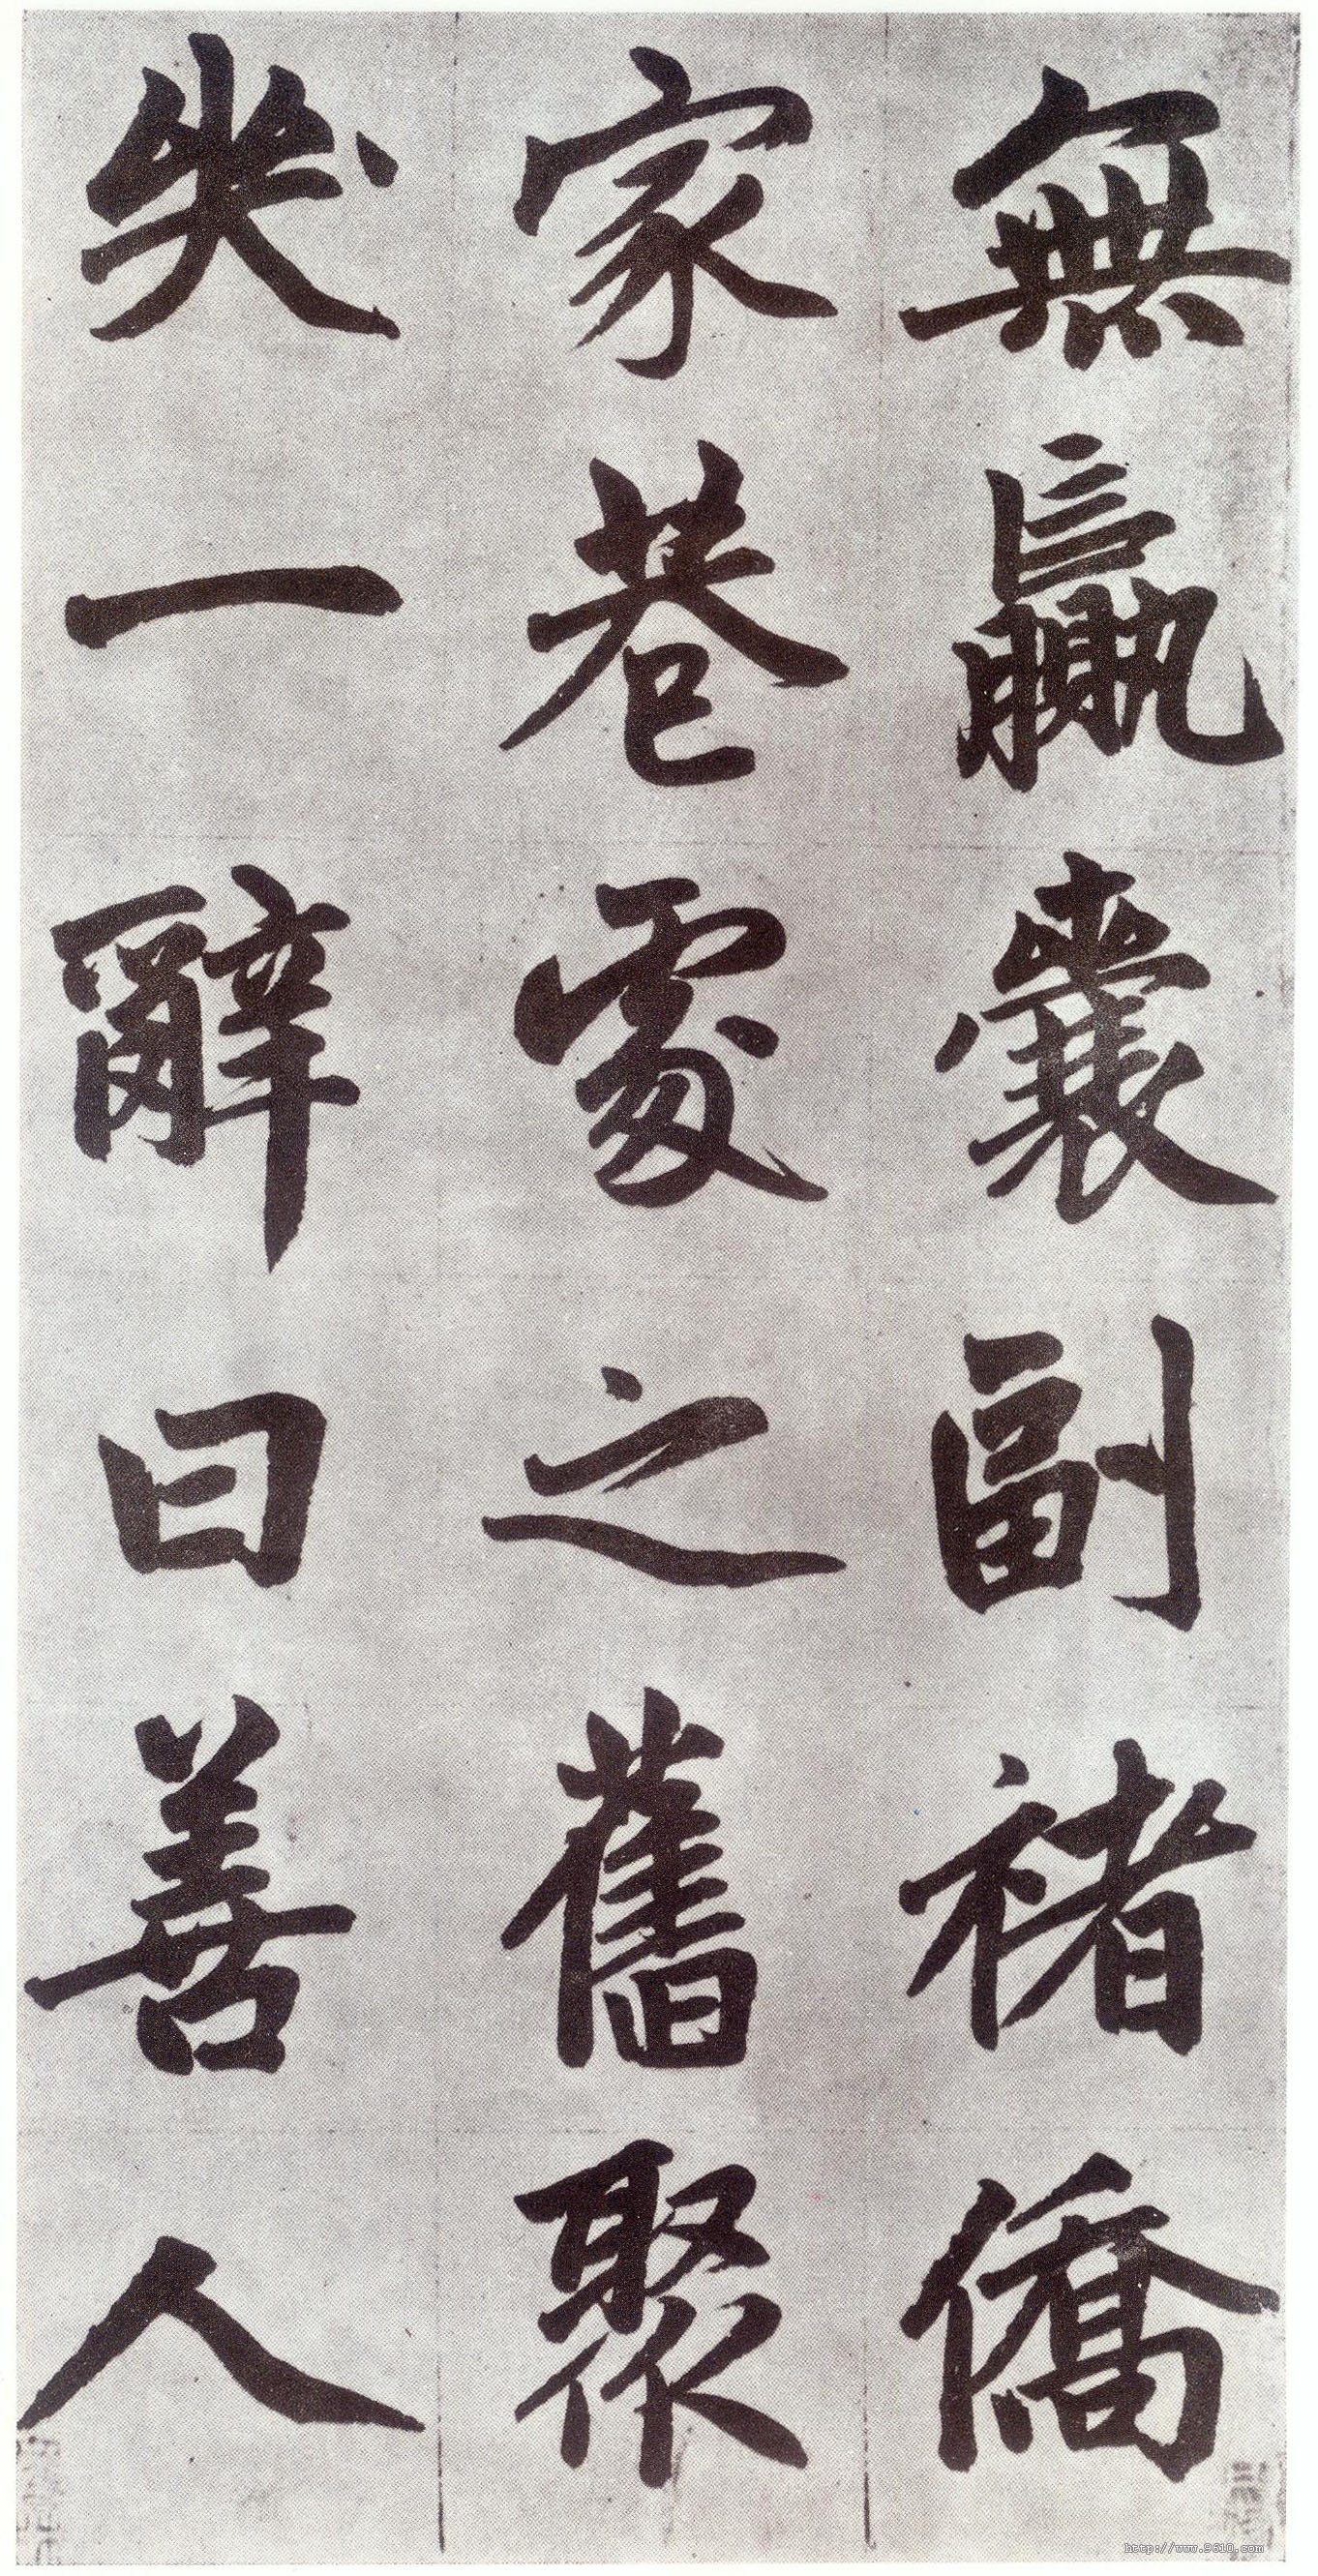 無羸囊副褚僑
家巷處之舊聚
失一辭曰善人
http://www.9610.com